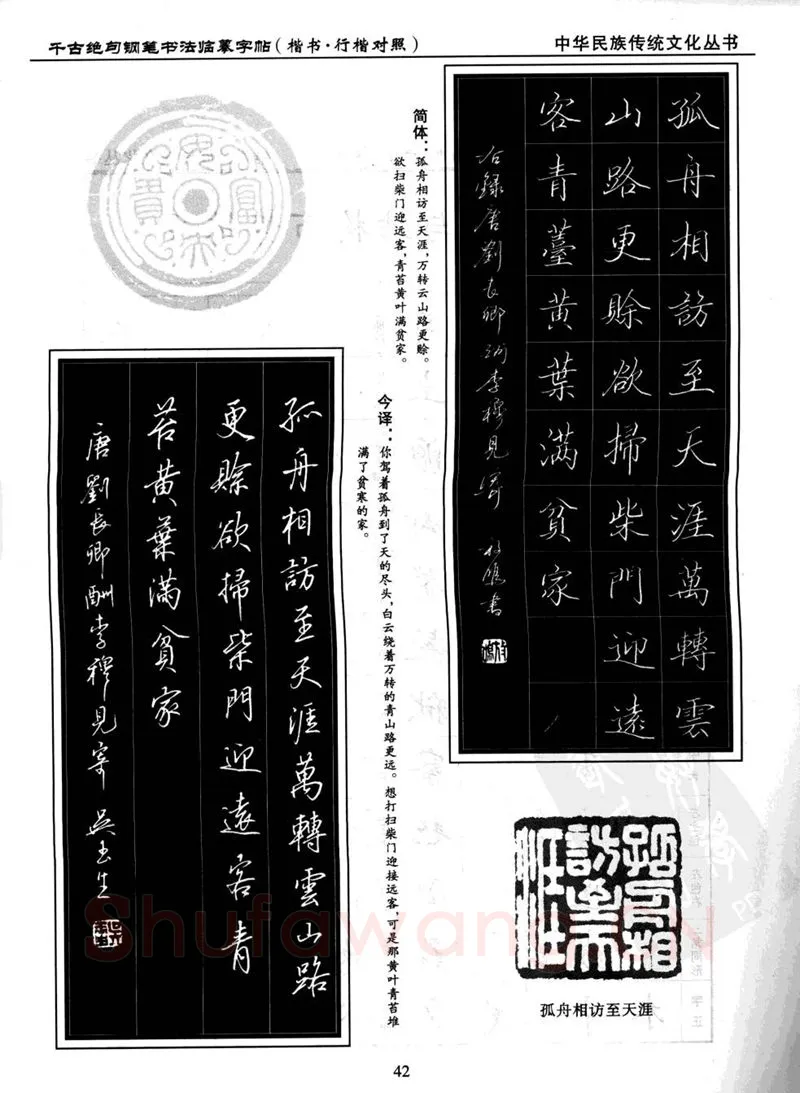 千古绝句钢笔书法临摹字帖(楷书·行楷对照)
中华民族传统文化丛书
孤舟相訪至天涯萬轉雲
山路更賒欲掃柴門迎遠
客青薹黄葉滿貧家
右録唐劉長卿酬李穆見寄
简体:孤舟相访至天涯,万转云山路更赊。
欲扫柴门迎远客,青苔黄叶满贫家。
今译:你驾着孤舟到了天的尽头,白云绕着万转的青山路更远。想打扫柴门迎接远客,可是那黄叶青苔堆
满了贫寒的家。
孤舟相訪至天涯萬轉雲山路
更賒欲掃柴門迎遠客青
苔黄葉滿貧家
唐劉長卿酬李穆見寄 吴玉生
孤舟相訪至天涯
孤舟相访至天涯
Shufawang.CN
42